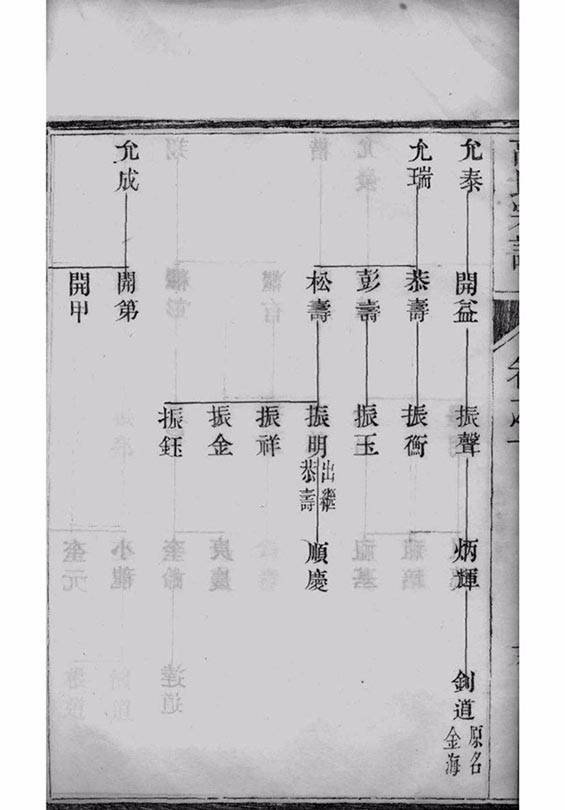 允泰
開益
振聲
炳輝
釗道
原名
金海
允瑞
恭壽
振衡
彭壽
振玉
松壽
振明
出繼
恭壽
順慶
振祥
振金
振鈺
允成
開第
開甲